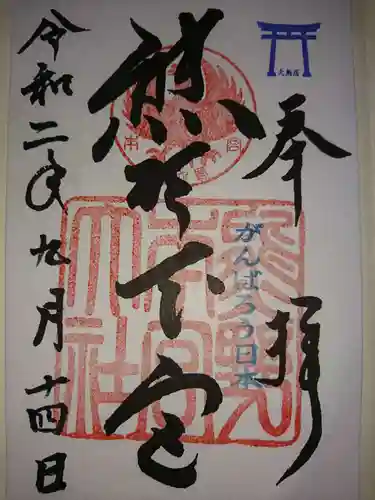 大鳥居
奉拝
がんばろう日本
熊野本宮
熊野
本宮
大社
令和二年九月十四日